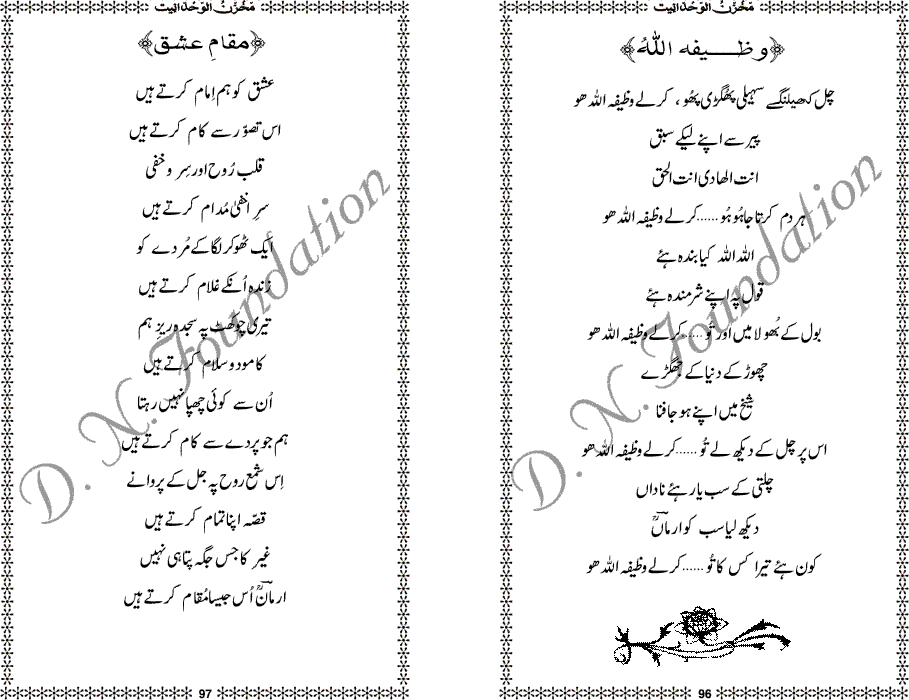 مَخْزَنُ الوَحْدَانِیت
وظیفہ اللہُ
چل کھیلنگے سہیلی پھگڑی پھُو، کرلے وظیفہ اللہ ھو
پیر سے اپنے لیکے سبق
انت الھادی انت الحق
ہر دم کرتا جا ہُو ہُو......کرلے وظیفہ اللہ ھو
اللہ اللہ کیا بندہ ہئے
قول پہ اپنے شرمندہ ہئے
بول کے بُھولا میں اور تُو......کرلے وظیفہ اللہ ھو
چھوڑ کے دنیا کے جھگڑے
شیخ میں اپنے ہوجا فنا
اس پر چل کے دیکھ لے تُو......کرلے وظیفہ اللہ ھو
چلتی کے سب یار ہئے ناداں
دیکھ لیا سب کو ارماںؒ
کون ہئے تیرا کس کا تُو......کرلے وظیفہ اللہ ھو
96
مَخْزَنُ الوَحْدَانِیت
مقامِ عشق
عشق کو ہم اِمام کرتے ہیں
اس تصوّر سے کام کرتے ہیں
قلب رُوح اور سِر و خفی
سرِ اخفیٰ مُدام کرتے ہیں
ایک ٹھوکر لگا کے مُردے کو
زندہ اُنکے غلام کرتے ہیں
تیری چوکھٹ پہ سجدہ ریز ہم
کامود و سلام کرتے ہیں
اُن سے کوئی چھپا نہیں رہتا
ہم جو پردے سے کام کرتے ہیں
اِس شمع روح پہ جل کے پروانے
قصّہ اپنا تمام کرتے ہیں
غیر کا جس جگہ پتا ہی نہیں
ارماںؒ اُس جیسا مُقام کرتے ہیں
97
D. N. Foundation
D. N. Foundation